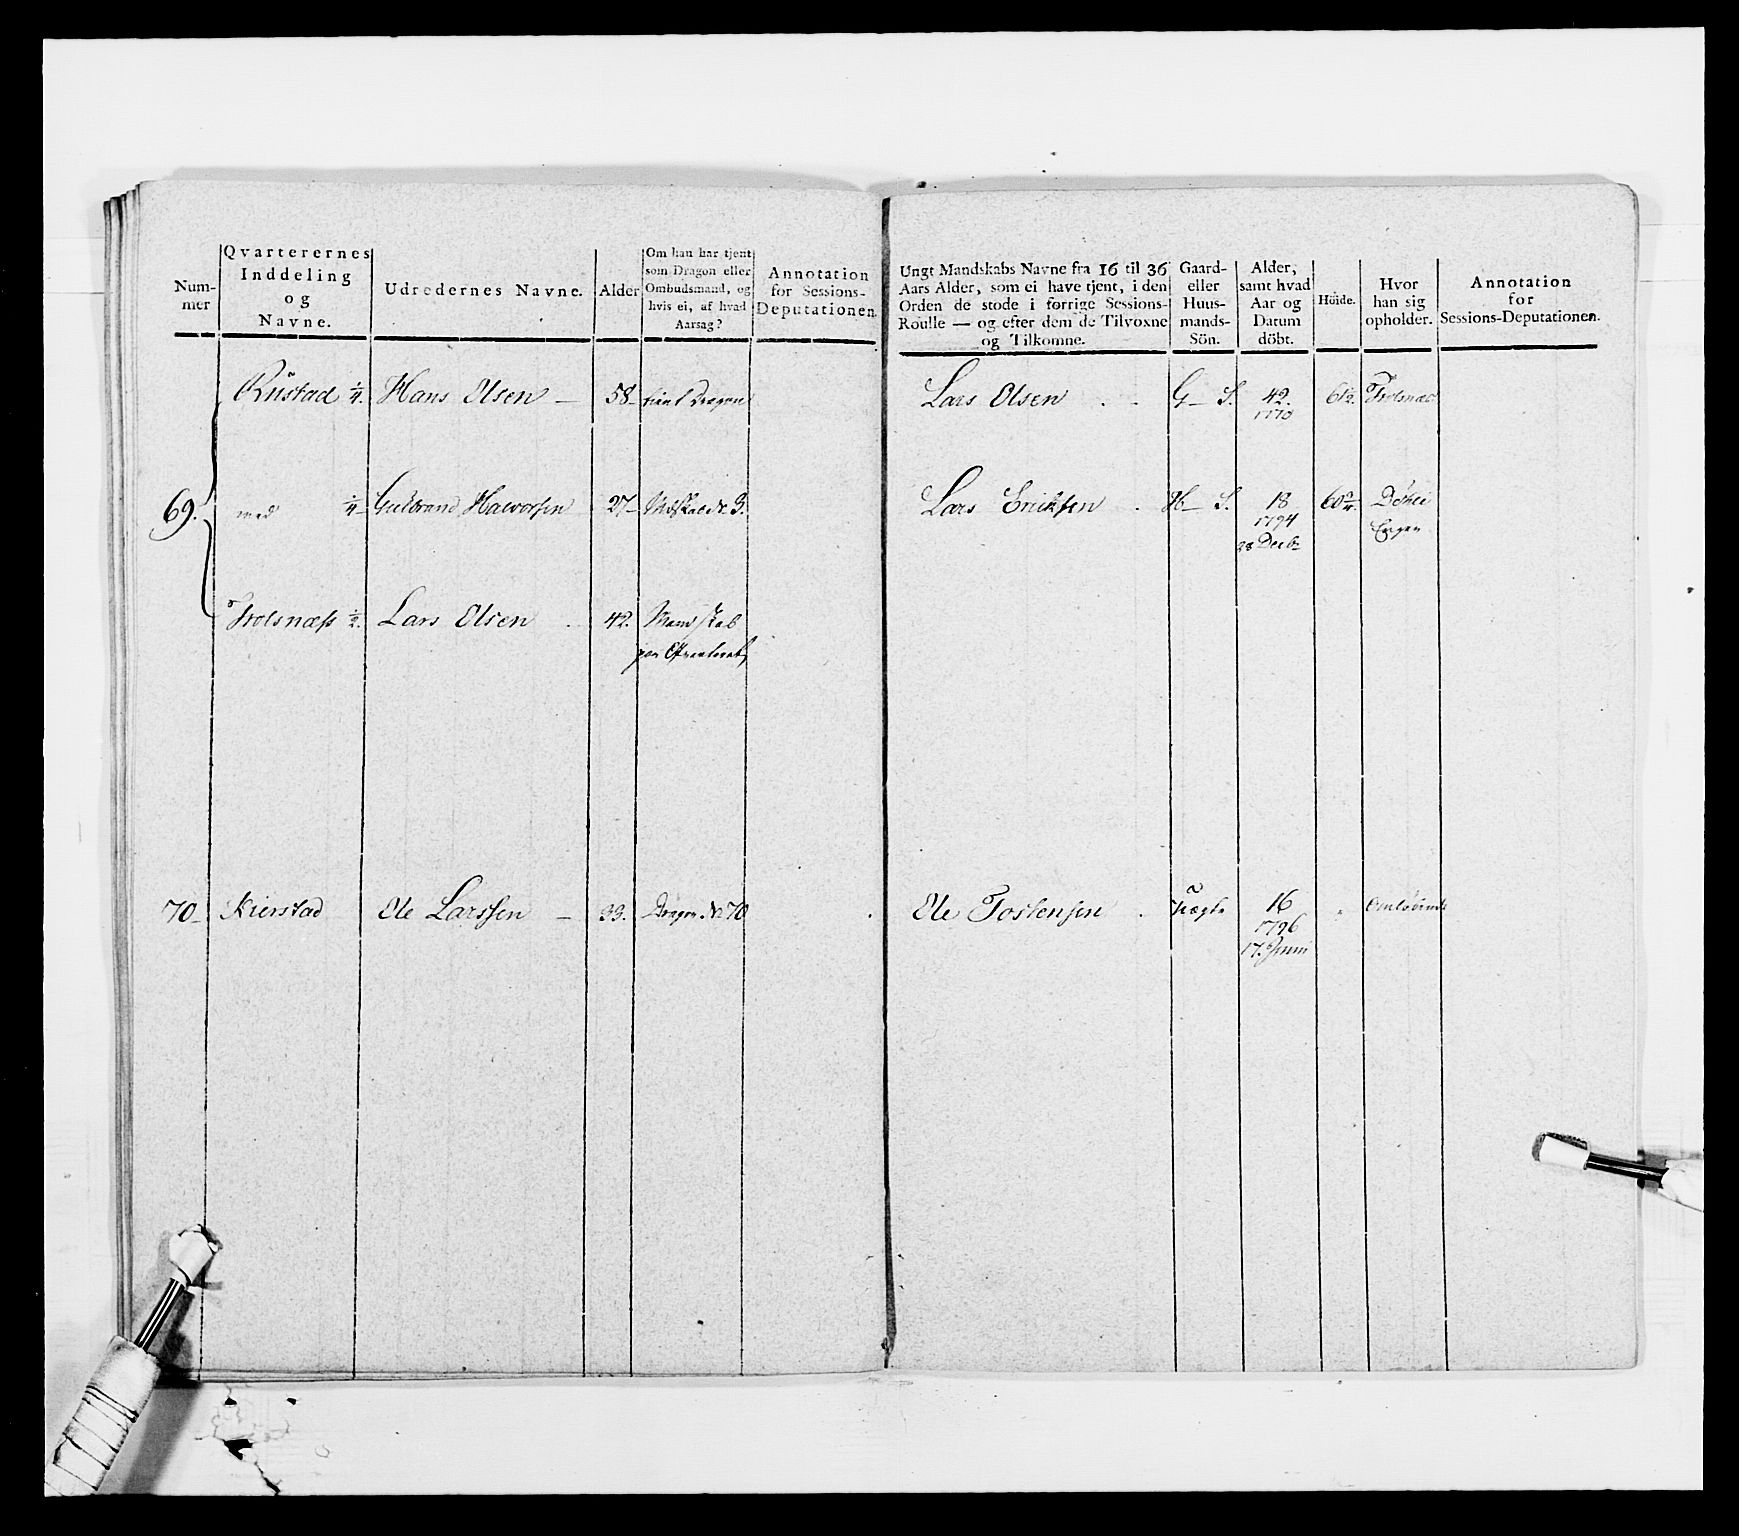 Num-
mer
Qvarterernes
Inddeling
og
Navne.
Udredernes Navne.
Alder
Om han har tjent
som Dragon eller
Ombudsmand, og
hvis ei, af hvad
Aarsag?
Annotation
for Sessions-
Deputationen.
Rustad 1/4. Hans Olsen – 58– tient Dragon
69. med 1/4– Guldbrand Halvorsen 27–
Trolsnæss 1/2. Lars Olsen 42. Mandskab
70– Kierstad Ole Larssen – 33. Dragon No 70
Ungt Mandskabs Navne fra 16 til 36
Aars Alder, som ei have tjent, i den
Orden de stode i forrige Sessions-
Roulle — og efter dem de Tilvoxne
og Tilkomne.
Gaard-
eller
Huus-
mands-
Sön.
Alder,
samt hvad
Aar og
Datum
döbt.
Höide.
Hvor
han sig
opholder.
Annotation
for
Sessions-Deputationen.
Lars Olsen G– S. 42. 61 1/2. Trolsnæs
1770
Lars Ericksen H– S. 18
1794
28 Decb
Ole Tostensen Tægte 16 Omløbende
1796
17. Juni